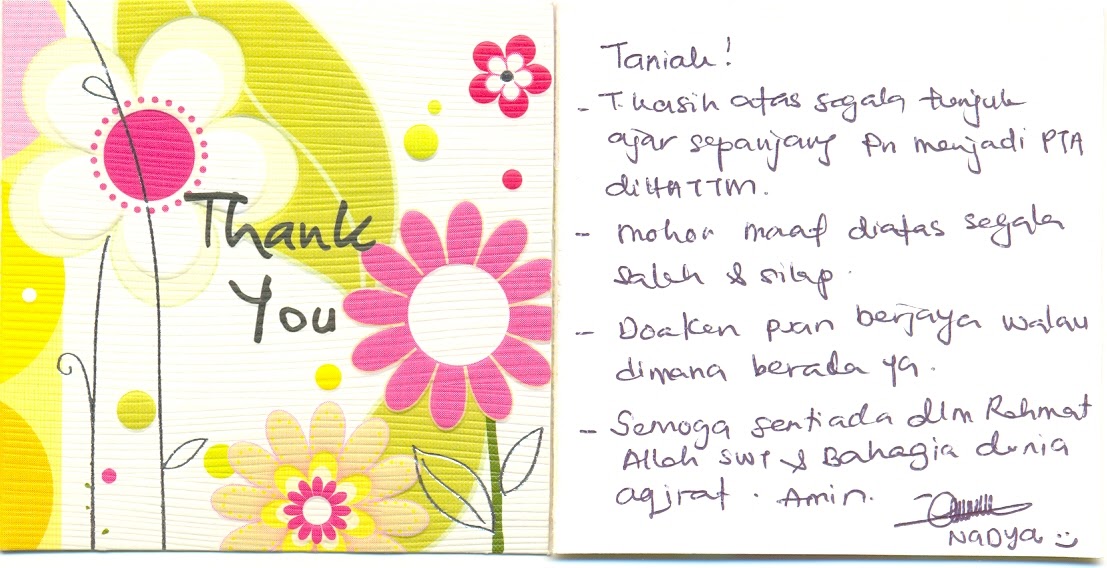 Thank
You
Taniah!
- T. kasih atas segala tunjuk
ajar sepanjang Pn menjadi PTA
diHATTM.
- mohon maaf diatas segala
salah & silap.
- Doakan puan berjaya walau
dimana berada ya.
- Semoga sentiada dlm Rahmat
Allah SWT & Bahagia dunia
aqirat. Amin.
NADYA